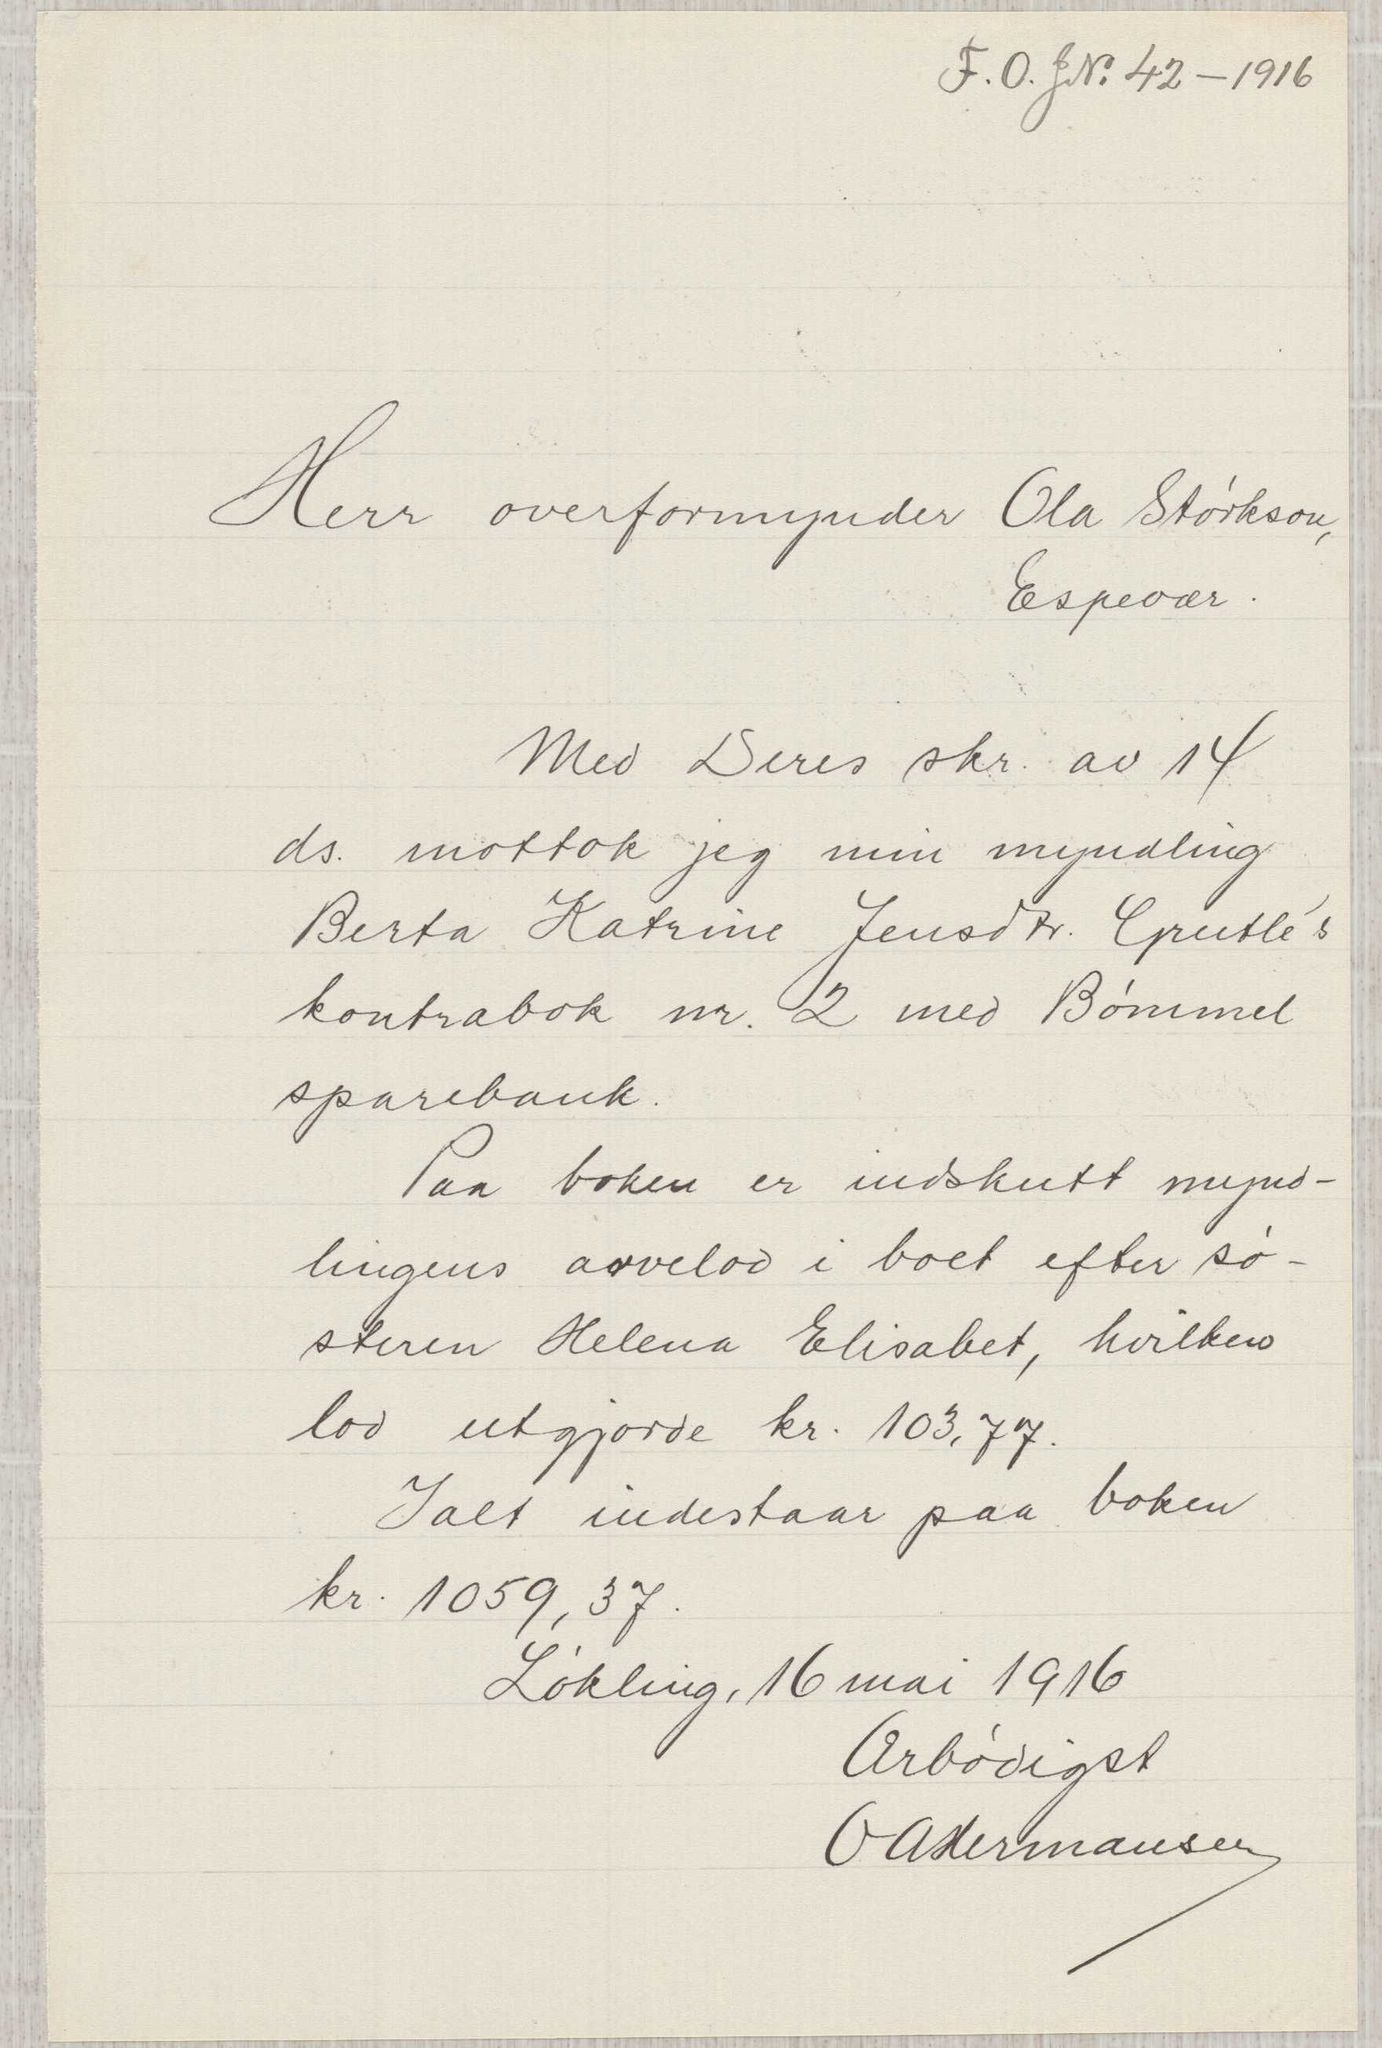 F. O. J№. 42 – 1916
Herr overformynder Ola Størkson,
Espevær.
Med Deres skr. av 14
ds. mottok jeg min myndling
Berta Katrine Jensdtr. Grutlé's
kontrabok nr. 2 med Bømmel
sparebank.
Paa boken er indskutt mynd-
lingens arvelod i boet efter sø-
steren Helena Elisabet, hvilken
lod utgjorde kr. 103,77.
Ialt indestaar paa boken
kr. 1059,37.
Løkling, 16 mai 1916
Ærbødigst
O A Hermansen